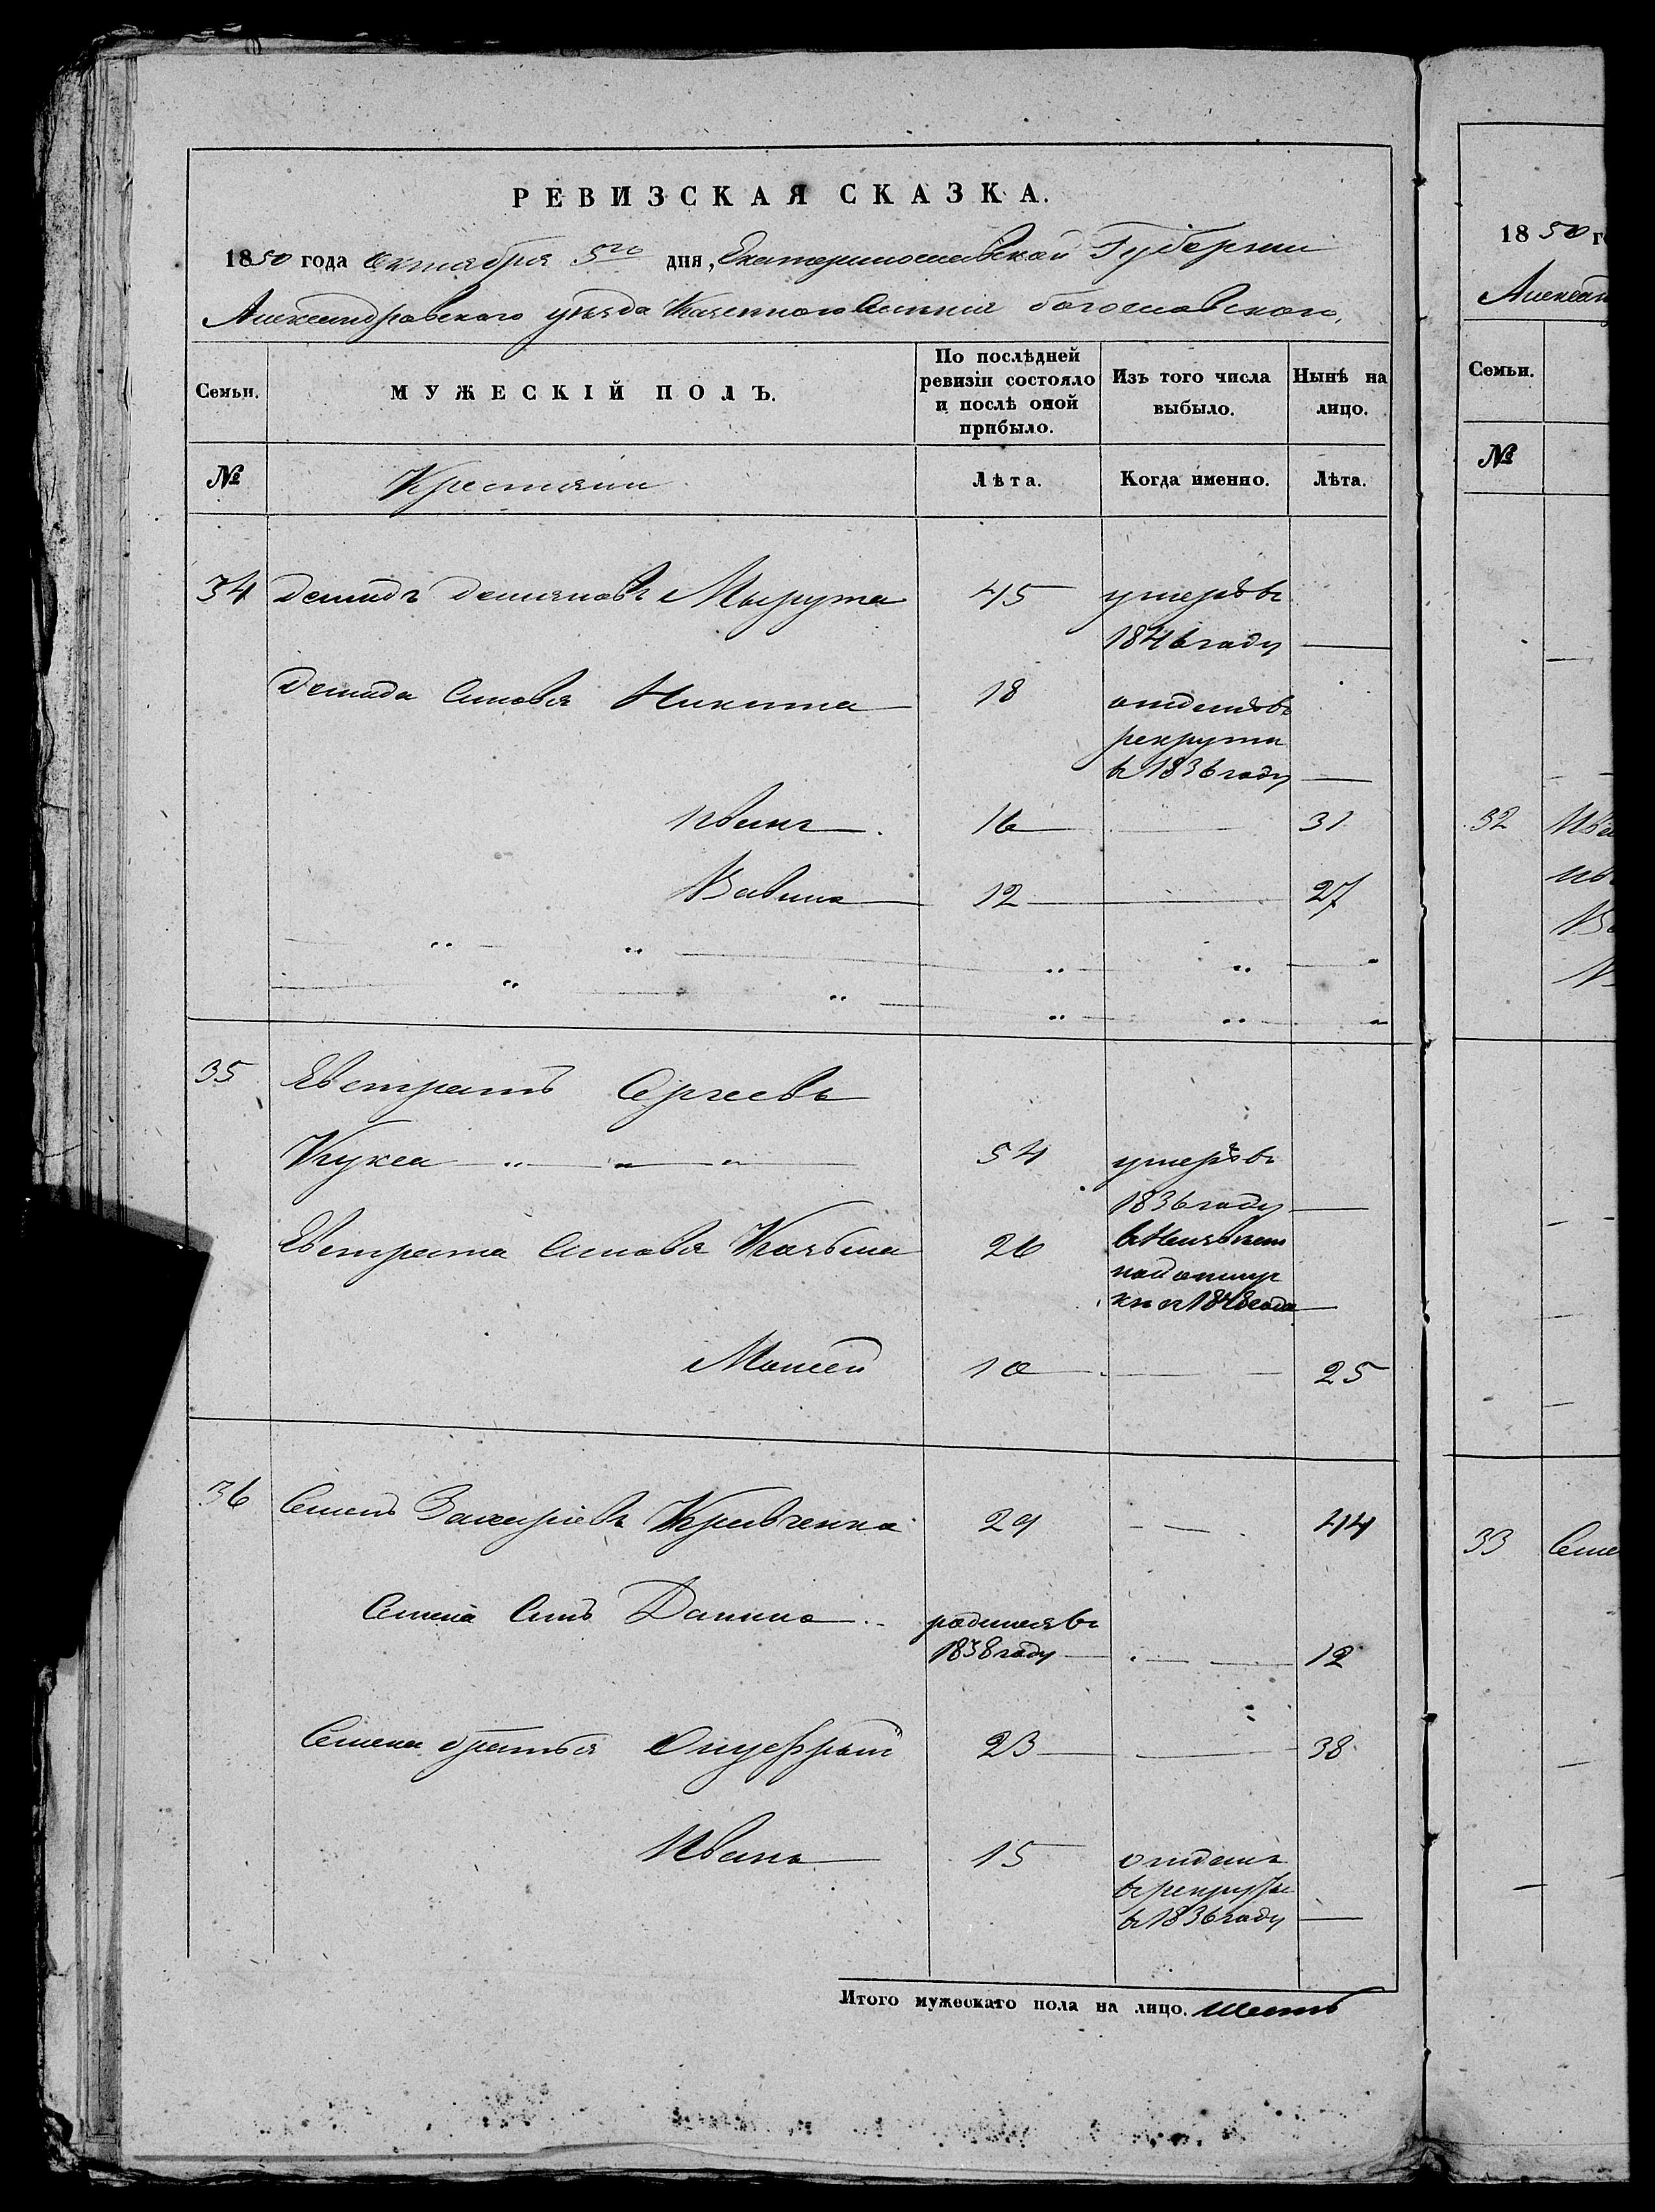 РЕВИЗСКАЯ СКАЗКА.
1850 года Октября 5го дня, Екатеринославской Губернии
Александровского уезда Казенного Селения Богословского,
Семьи.
МУЖЕСКІЙ ПОЛЪ.
По послѣдней ревизіи состояло и послѣ оной прибыло.
Изъ того числа выбыло.
Нынѣ на лицо.
№
Крестьяни
Лѣта.
Когда именно.
Лѣта.
34 Демидъ Демьяновъ Мырута 45 умеръ въ
1846 году —
Демида Сыновья Никита 18 отданъ въ
рекруты
в 1836 году —
Иванъ 16 — 31
Вавила 12 — 27
35 Евстратъ Сергеевъ
Кукса 54 умеръ в
1836 году —
Евстрата Сыновья Козьма 26
1848 года —
Моисей 10 — 25
36 Семенъ Захаріевъ Кравченко 29 — 44
Семена Сынъ Данило родился в
1838 году — 12
Семена братья Онуфрий 23 — 38
Иванъ 15 отданъ
в рекруты
в 1836 году —
Итого мужескаго пола на лицо. шесть
1850 го
Семьи.
№
32
33 Семе